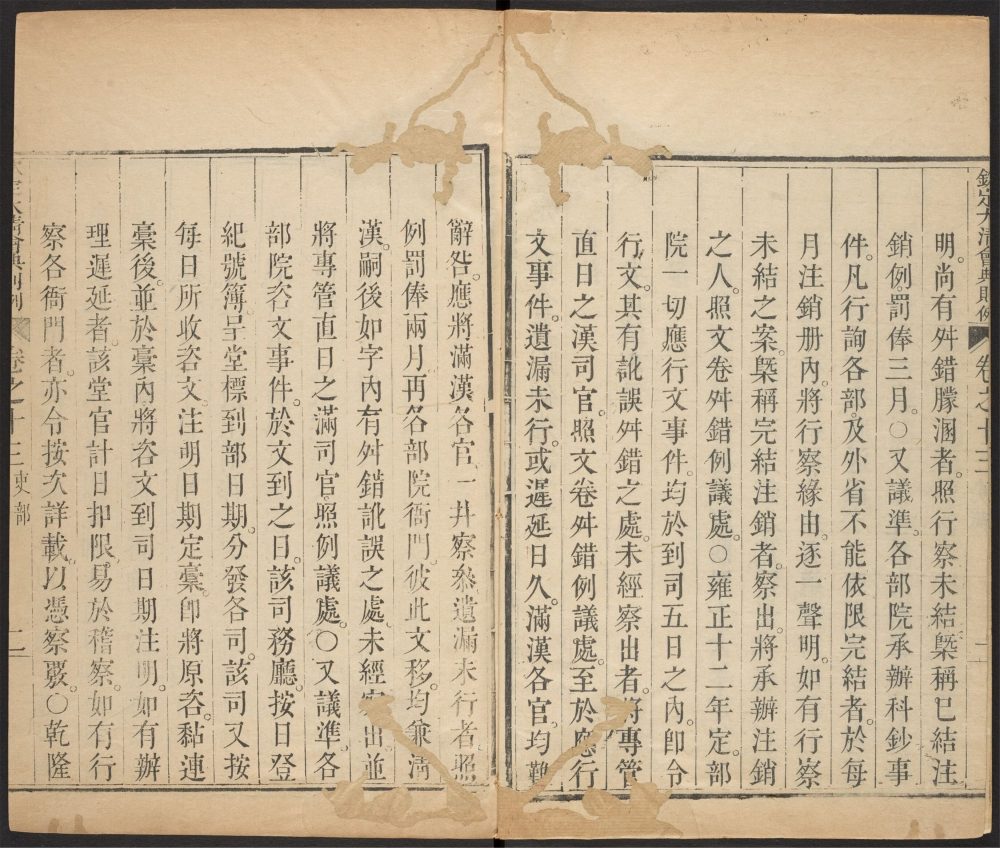 欽定大清會典則例 卷之十三
明。尚有舛錯朦溷者。照行察未結槩稱巳結注
銷例。罰俸三月。○又議準。各部院承辦科鈔事
件。凡行詢各部。及外省不能依限完結者。於每
月注銷册內。將行察緣由。逐一聲明。如有行察
未結之案。槩稱完結注銷者。察出。將承辦注銷
之人。照文卷舛錯例議處。○雍正十二年定。部
院一切應行文事件。均於到司五日之內。卽令
行文。其有訛誤舛錯之處。未經察出者。將專管
直日之漢司官。照文卷舛錯例議處。至於應行
文事件。遺漏未行。或遲延日久。滿漢各官。均難
辭咎。應將滿漢各官。一幷察叅。遺漏未行者。照
例罰俸兩月。再各部院衙門。彼此文移。均兼淸
漢。嗣後如字內有舛錯訛誤之處。未經察出。並
將專管直日之滿司官。照例議處。○又議準。各
部院咨文事件。於文到之日。該司務廳。按日登
紀號簿。呈堂標到部日期。分發各司。該司又按
每日所收咨文。注明日期定稾。卽將原咨。黏連
稾後。並於稾內將咨文到司日期注明。如有辦
理遲延者。該堂官計日扣限。易於稽察。如有行
察各衙門者。亦令按次詳載。以憑察覈。○乾隆
欽定大清會典則例 卷之十三 吏部 二